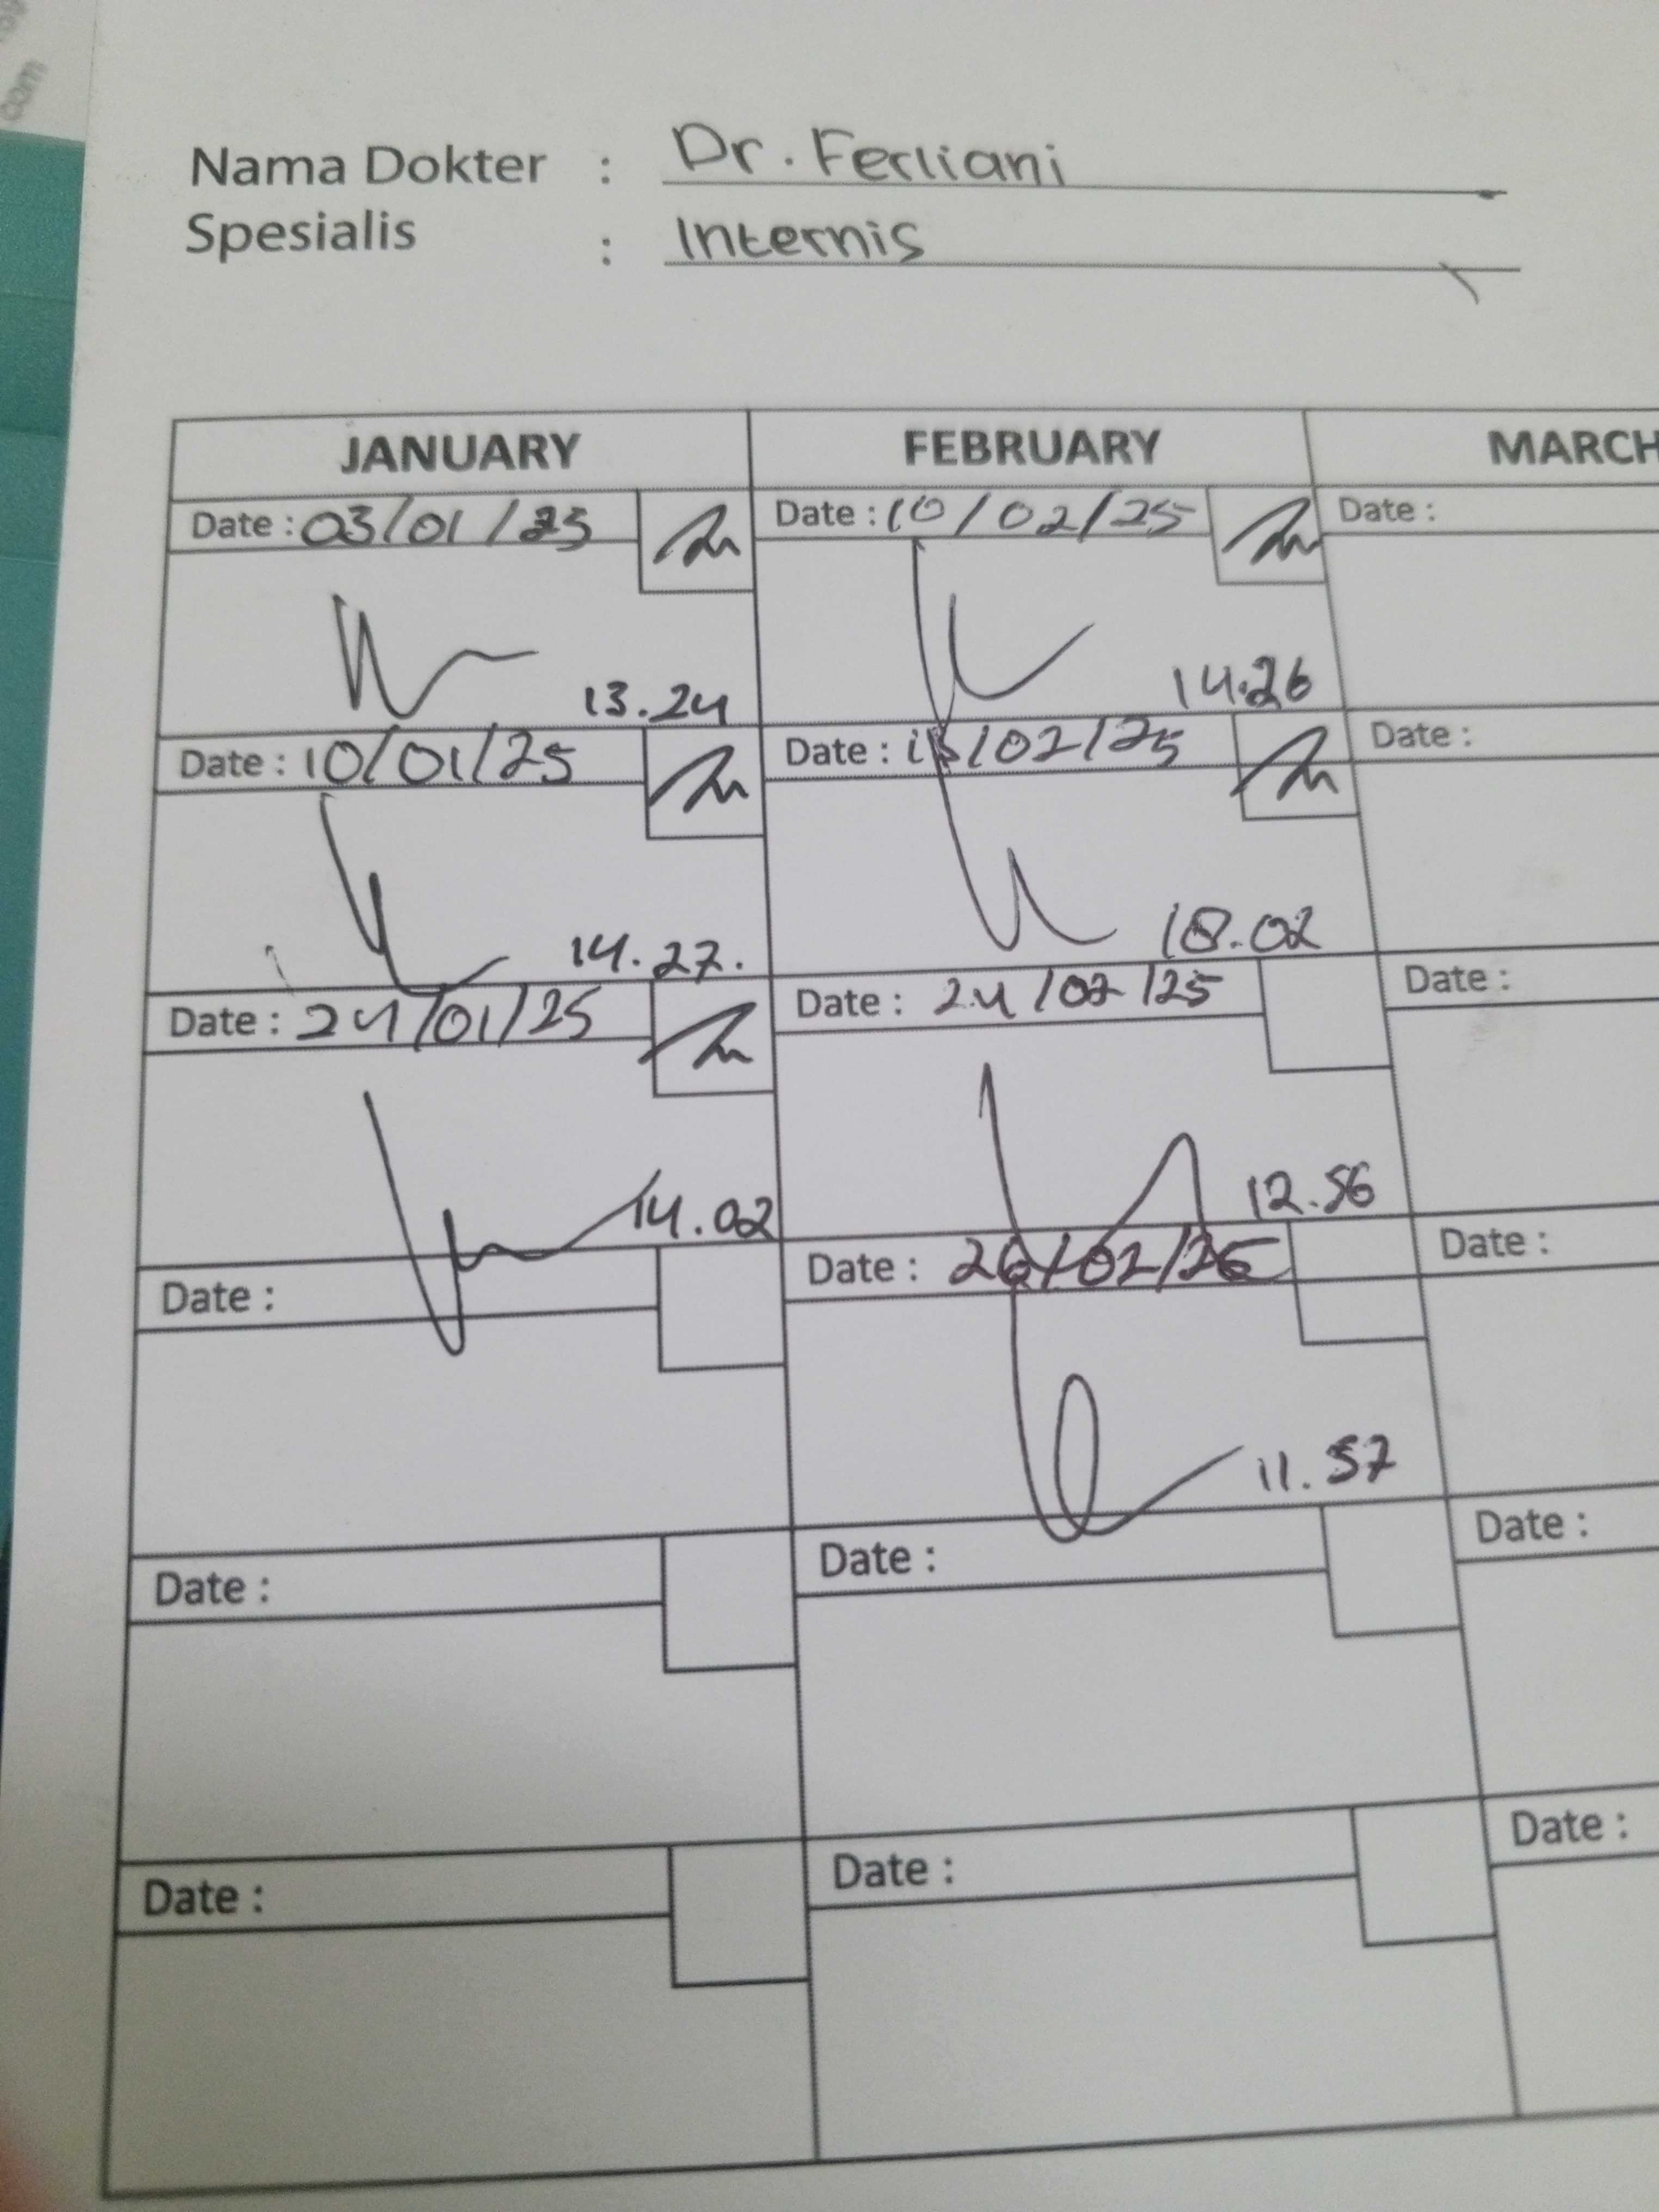 com
Nama Dokter : Dr. Ferliani
Spesialis : Internis
JANUARY FEBRUARY MARCH
Date : 03/01/25 Date : 10/02/25 Date :
13.24 14.26
Date : 10/01/25 Date : /02/25 Date :
14.27. 18.02
Date : 24/01/25 Date : 24/02/25 Date :
14.02 12.56
Date : Date : 26/02/25 Date :
11.57
Date : Date : Date :
Date : Date : Date :